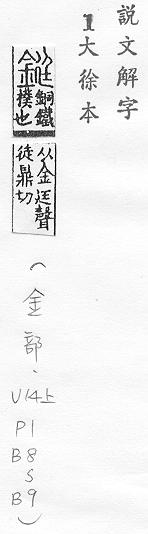 說文解字
1大徐本
鋌 銅鐵樸也
从金廷聲徒鼎切
(金部、
V14上
P1
B8
S
B9)